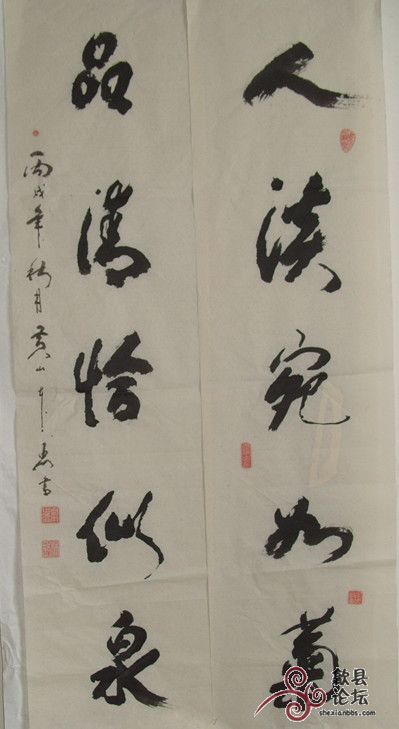 人淡宛如菊
品清恰似泉
丙戌年秋月黄山
歙县
论坛
shexianbbs.com